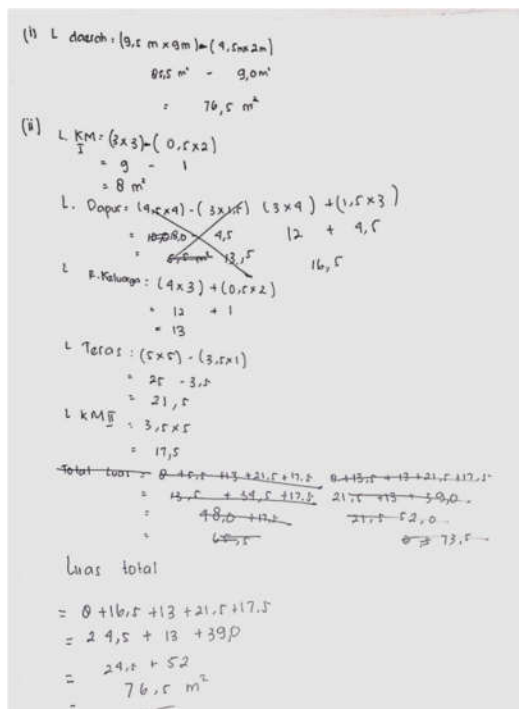 (i) L daerah = (9,5 m x 9m) - (4,5m x 2m)
85,5 m² - 9,0 m²
= 76,5 m²
(ii) L. KM I = (3x3) - (0,5x2)
= 9 - 1
= 8 m²
L. Dapur = (4,5x4) - (3x1,5) (3x4) + (1,5x3)
= 18,0 - 4,5 12 + 4,5
= 13,5 16,5
L R.Keluarga = (4x3) + (0,5x2)
= 12 + 1
= 13
L Teras = (5x5) - (3,5x1)
= 25 - 3,5
= 21,5
L KM II = 3,5x5
= 17,5
Total Luas = 8 + 5,5 + 13 + 21,5 + 17,5 8 + 13,5 + 13 + 21,5 + 17,5
= 13,5 + 34,5 + 17,5 21,5 + 13 + 39,0
= 48,0 + 17,5 21,5 52,0
= 65,5 73,5
Luas total
= 8 + 16,5 + 13 + 21,5 + 17,5
= 24,5 + 13 + 39,0
= 24,5 + 52
= 76,5 m²